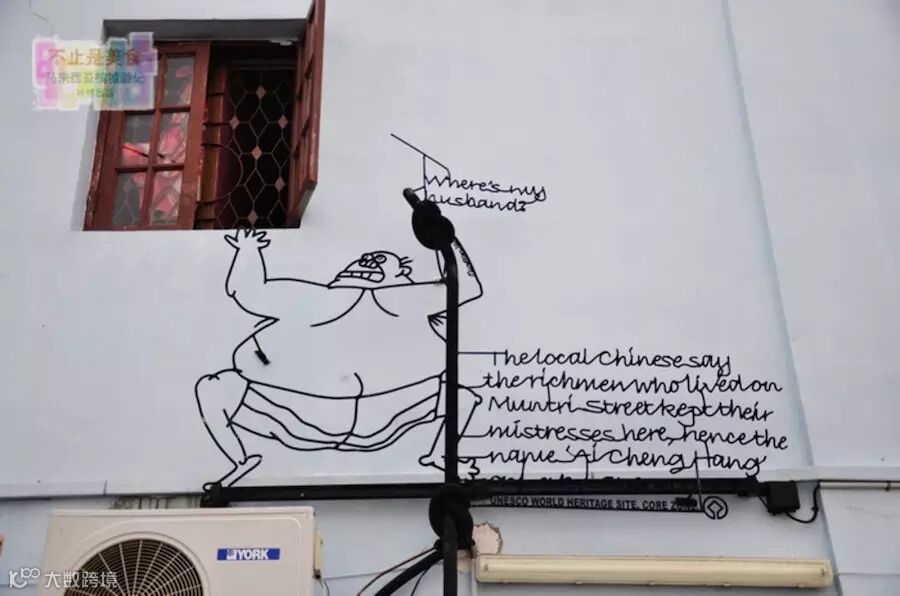 不止是美食
马来西亚槟城游记
Where's my
husband?
The local Chinese say
the rich men who lived on
Muntri Street kept their
mistresses here, hence the
name 'Ai Cheng Hang'
UNESCO WORLD HERITAGE SITE, CORE ZONE
YORK
大数跨境